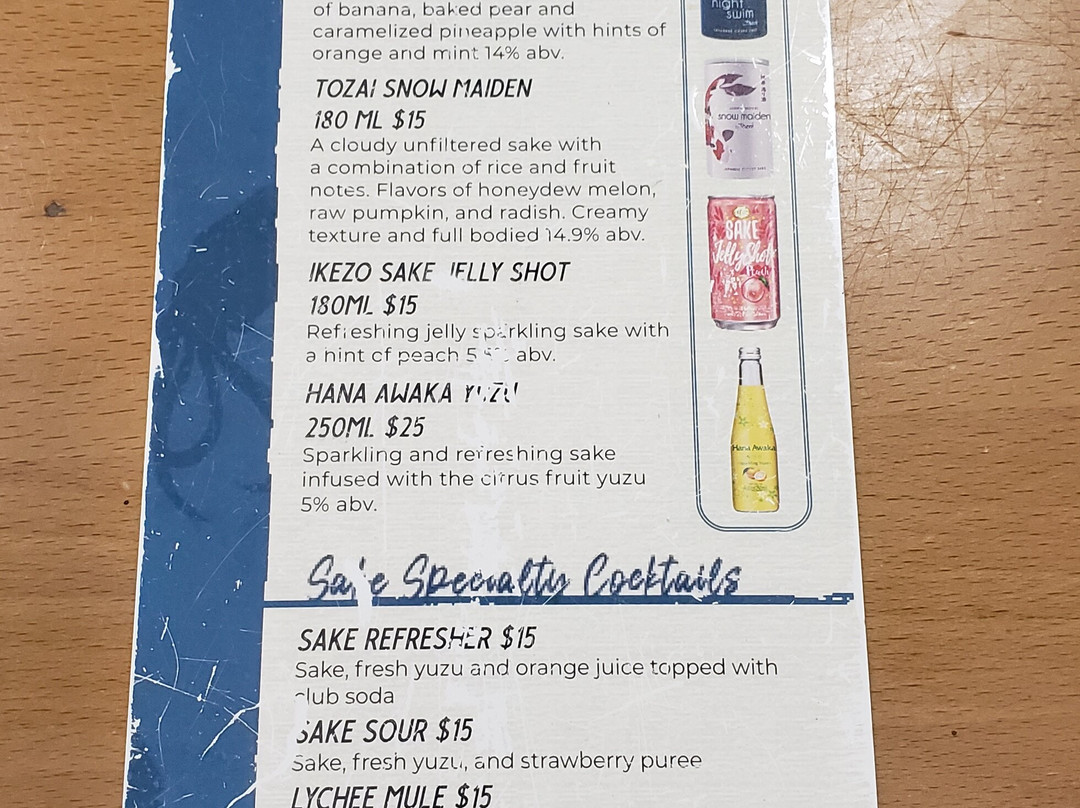 of banana, baked pear and
caramelized pineapple with hints of
orange and mint 14% abv.
TOZAI SNOW MAIDEN
180 ML $15
A cloudy unfiltered sake with
a combination of rice and fruit
notes. Flavors of honeydew melon,
raw pumpkin, and radish. Creamy
texture and full bodied 14.9% abv.
IKEZO SAKE JELLY SHOT
180ML $15
Refreshing jelly sparkling sake with
a hint of peach abv.
HANA AWAKA YUZU
250ML $25
Sparkling and refreshing sake
infused with the citrus fruit yuzu
5% abv.
night
swim
snow maiden
SAKE
Jelly Shot
Peach
Hana Awaka
Sake Specialty Cocktails
SAKE REFRESHER $15
Sake, fresh yuzu and orange juice topped with
club soda
SAKE SOUR $15
Sake, fresh yuzu, and strawberry puree
LYCHEE MULE $15